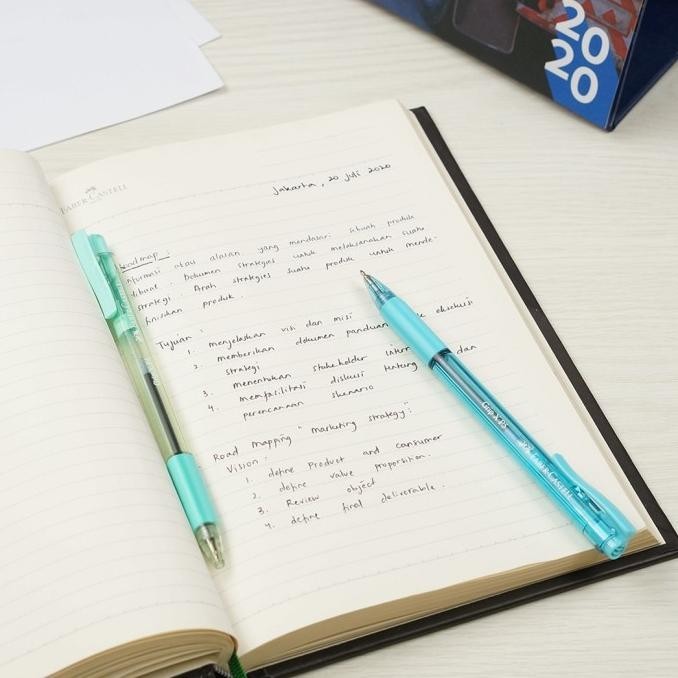 2020
FABER-CASTELL
Jakarta, 20 Juli 2020
Roadmap :
informasi atau alasan yang mendasari sebuah produk
dibuat. Dokumen strategis untuk melaksanakan suatu
strategi. Arah strategies suatu produk untuk mende-
finisikan produk.
Tujuan :
1. menjelaskan visi dan misi
2. memberikan dokumen panduan eksekusi
strategi
3. menentukan stakeholder dan
4. memfasilitasi diskusi tentang
perencanaan skenario
Road mapping "marketing strategy":
Vision :
1. define Product and consumer
2. define value proportion.
3. Review object
4. define final deliverable.
Grip X5 FABER-CASTELL